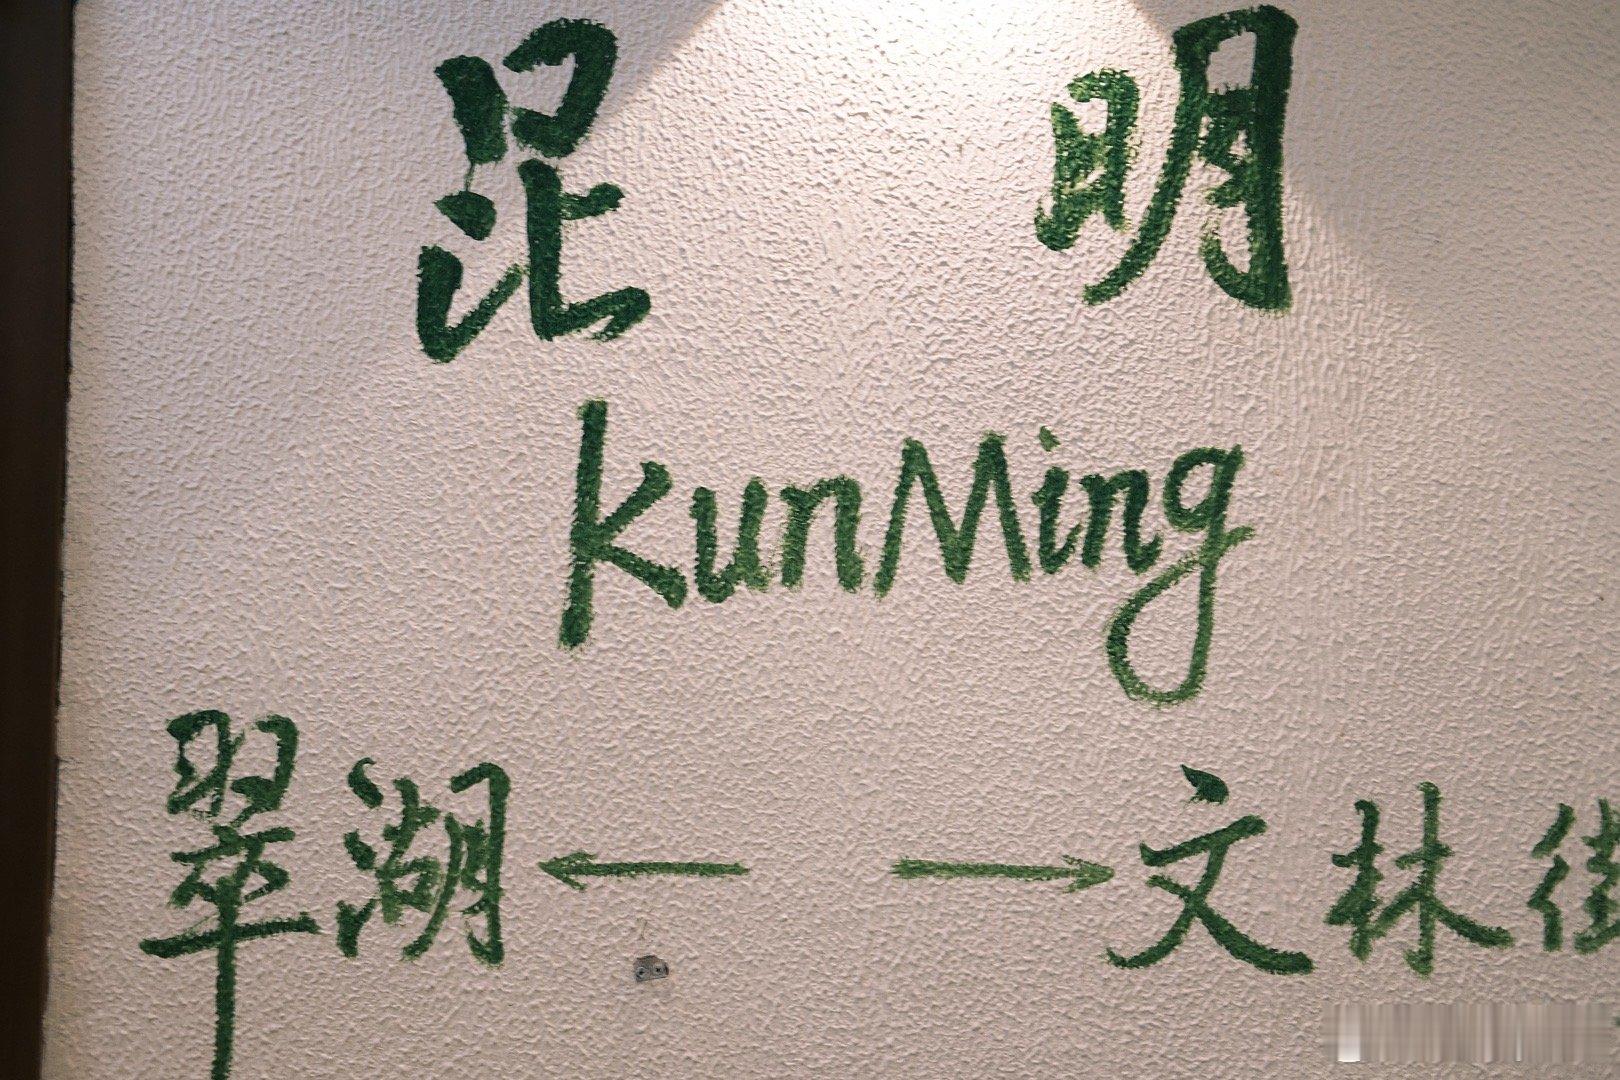 昆 明
KunMing
翠湖 ← → 文林街